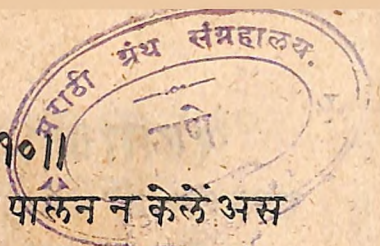 मराठी ग्रंथ संग्रहालय.
१०॥
पालन न केलें अस